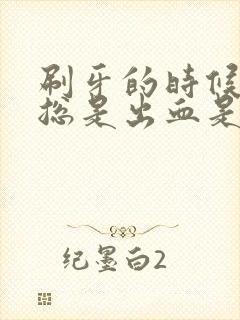 刷牙的时候
总是出血是
纪墨白2